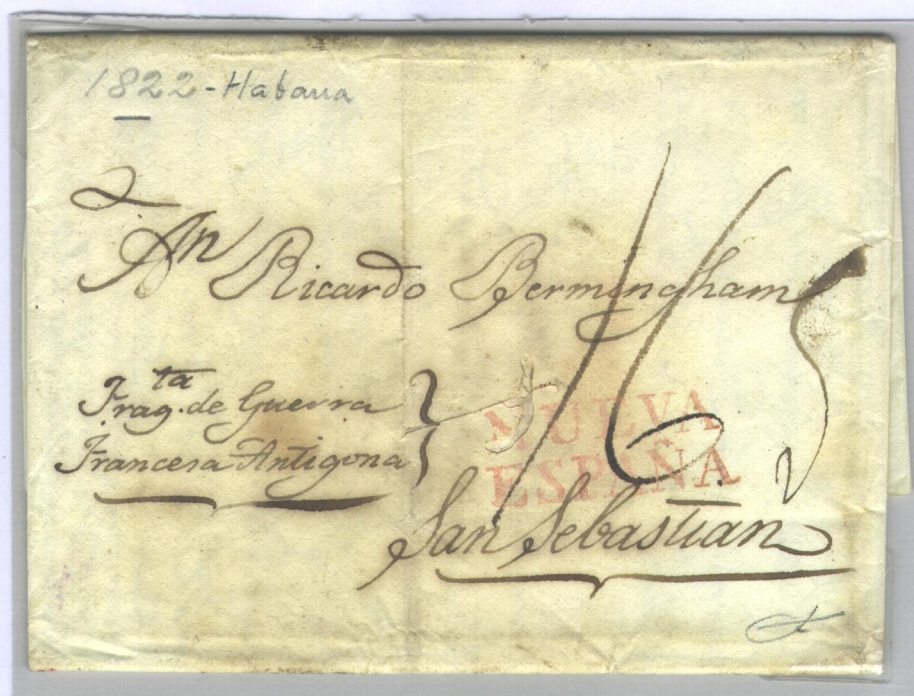 1822 - Habana
An Ricardo Bermingham
Frag.ta de Guerra
Francesa Antigona
16
NUEVA
ESPAÑA
San Sebastian